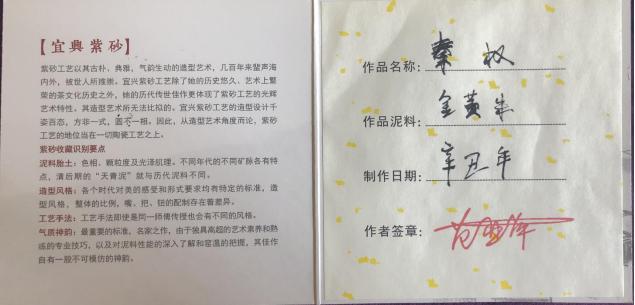 【宜興紫砂】
紫砂工艺以其古朴、典雅，气韵生动的造型艺术，几百年来蜚声海
内外，被世人所推崇。宜兴紫砂工艺除了她的历史悠久、艺术上繁
荣的茶文化历史之外，她的历代传世佳作更体现了紫砂工艺的光辉
艺术特性。其造型艺术所无法比拟的。宜兴紫砂工艺的造型设计千
姿百态，方非一式，圆不一相。因此，从造型艺术角度而论，紫砂工
艺的地位当在一切陶瓷工艺之上。
紫砂收藏识别要点
泥料胎土：色相，颗粒度及光泽肌理。不同年代的不同矿脉各有特
点，清后期的“天青泥”就与历代泥料不同。
造型风格：各个时代对美的感受和形式要求均有特定的标准，造
型风格，整体的比例，嘴、把、钮的配制存在着差异。
工艺手法：工艺手法即使是同一师傅传授也会有不同的风格。
气质神韵：最重要的标准，名家之作，由于独具高超的艺术素养和熟
练的专业技巧，以及对泥料性能的深入了解和窑温的把握，其佳作
自有一股不可模仿的神韵。
作品名称：秦权
作品泥料：金黄
制作日期：辛丑年
作者签章：